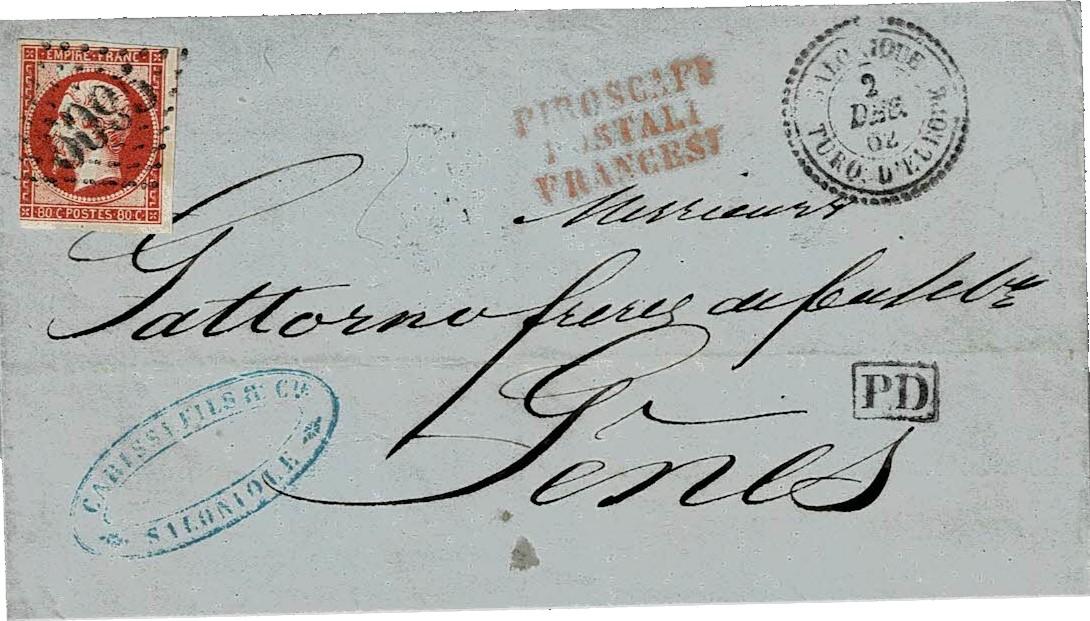 EMPIRE FRANC
80 C POSTES 80 C
PIROSCAFI
POSTALI
FRANCESI
SALONIQUE
2
DEC.
62
TURQ. D'EUROPE
Messieurs
Gattorno freres de
Gênes
PD
FILS & Cie
SALONIQUE